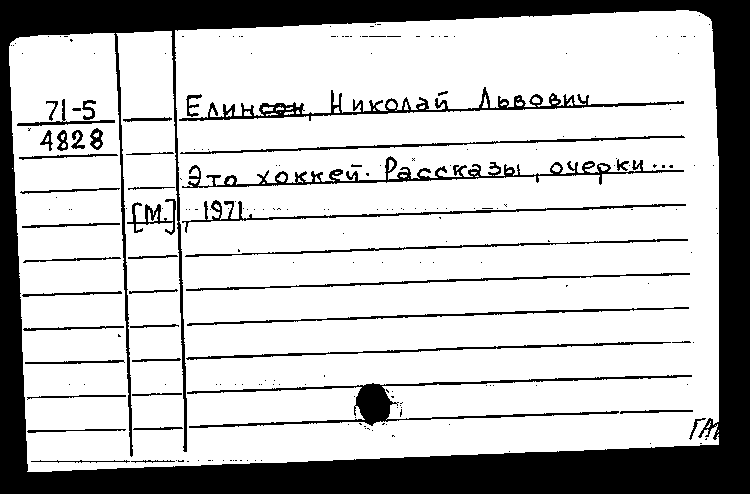 71-5 Елинсон, Николай Львович
4828
Это хоккей. Рассказы, очерки...
[М.], 1971.